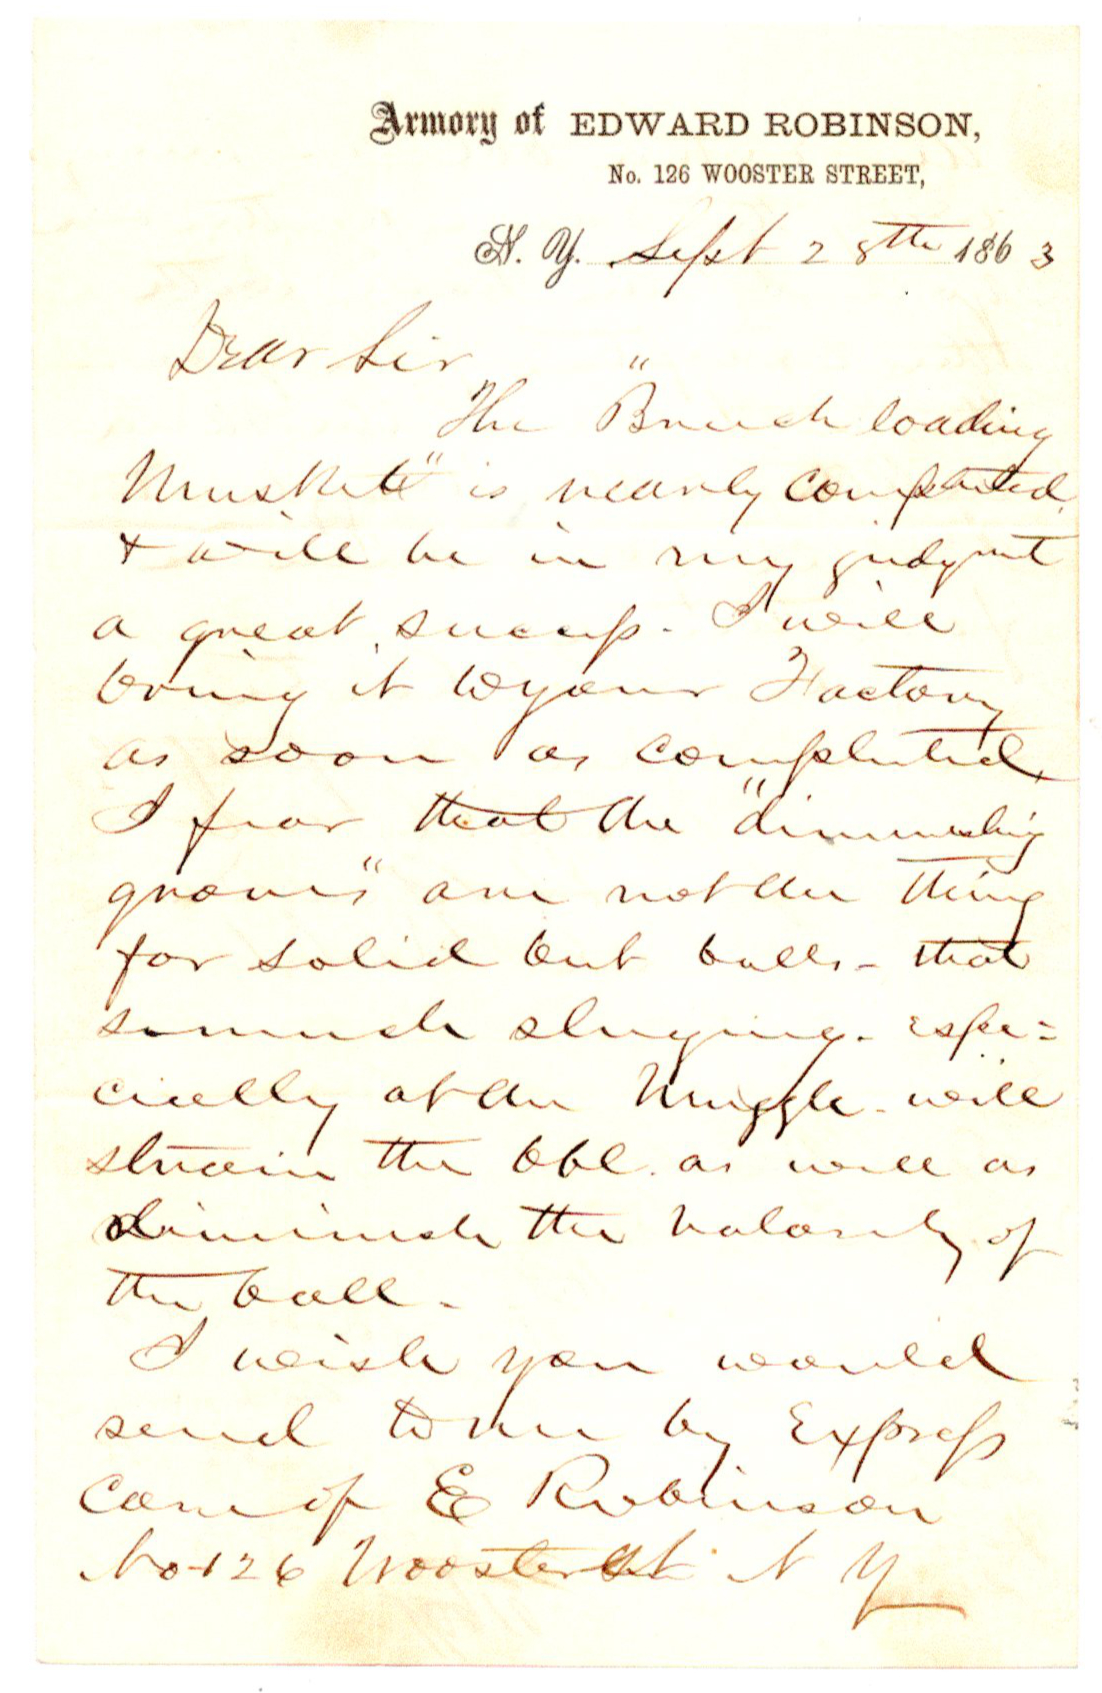 Armory of EDWARD ROBINSON,
No. 126 WOOSTER STREET,
N. Y. Sept 28th 1863
Dear Sir
The "Breech loading
Muskett" is nearly completed
& will be in my judgmt
a great success. I will
bring it to your Factory
as soon as completed,
I fear that the "diminishing
groves" are not the thing
for solid but balls - that
so much sluging - espe=
cially at the Muzzle - will
strain the bbl. as well as
diminish the Velosity of
the ball -
I wish you would
send to me by Express
Care of E Robinson
No 126 Wooster St N Y